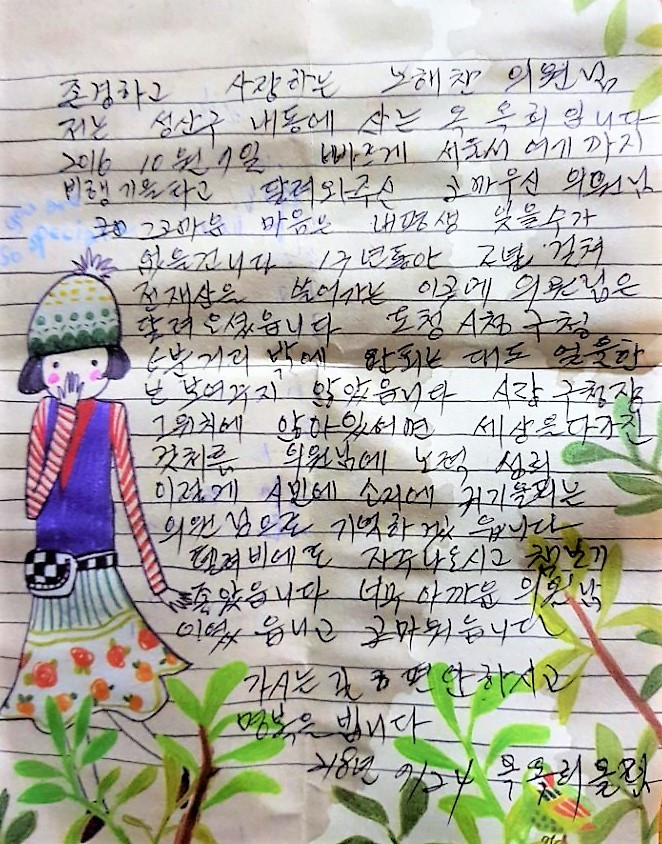 존경하고 사랑하는 노회찬 의원님
저는 성산구 내동에 사는 옥 옥희 입니다
2016 10월 7일 빠르게 서울서 여기 까지
비행기를 타고 달려와주신 고마우신 의원님
그 고마운 마음은 내평생 잊을수가
없을겁니다 17년동안
전재산은 이곳에 의원님은
달려오셨읍니다 도청 시청 구청
5분거리 밖에 안되는 대도 얼굴한
번 보여주지 않았읍니다 시장 구청장
그위치에 않아있서면 세상을다가진
것처름 의원님에
이렇게 시민에 소리에 귀기울리는
의원님으로 기억하겠읍니다
텔레비에도 자주나오시고
좋았읍니다 너무 아까운 의원님
이였읍니고 고마워읍니다
가시는길 편안하시고
명복을 빕니다
218년 7/24 옥 옥희 올림